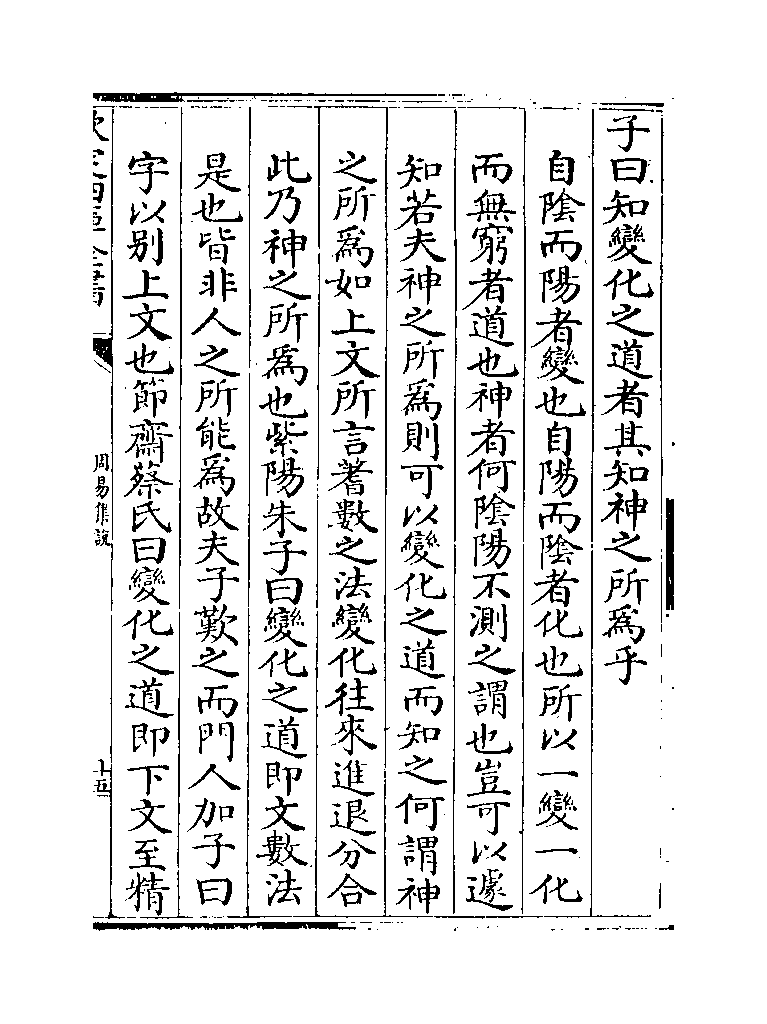 子曰知變化之道者其知神之所爲乎
自陰而陽者變也自陽而陰者化也所以一變一化
而無窮者道也神者何陰陽不測之謂也豈可以遽
知若夫神之所爲則可以變化之道而知之何謂神
之所爲如上文所言蓍數之法變化往來進退分合
此乃神之所爲也紫陽朱子曰變化之道即文數法
是也皆非人之所能爲故夫子歎之而門人加子曰
字以别上文也節齋蔡氏曰變化之道即下文至精
欽定四庫全書
周易集說
十五